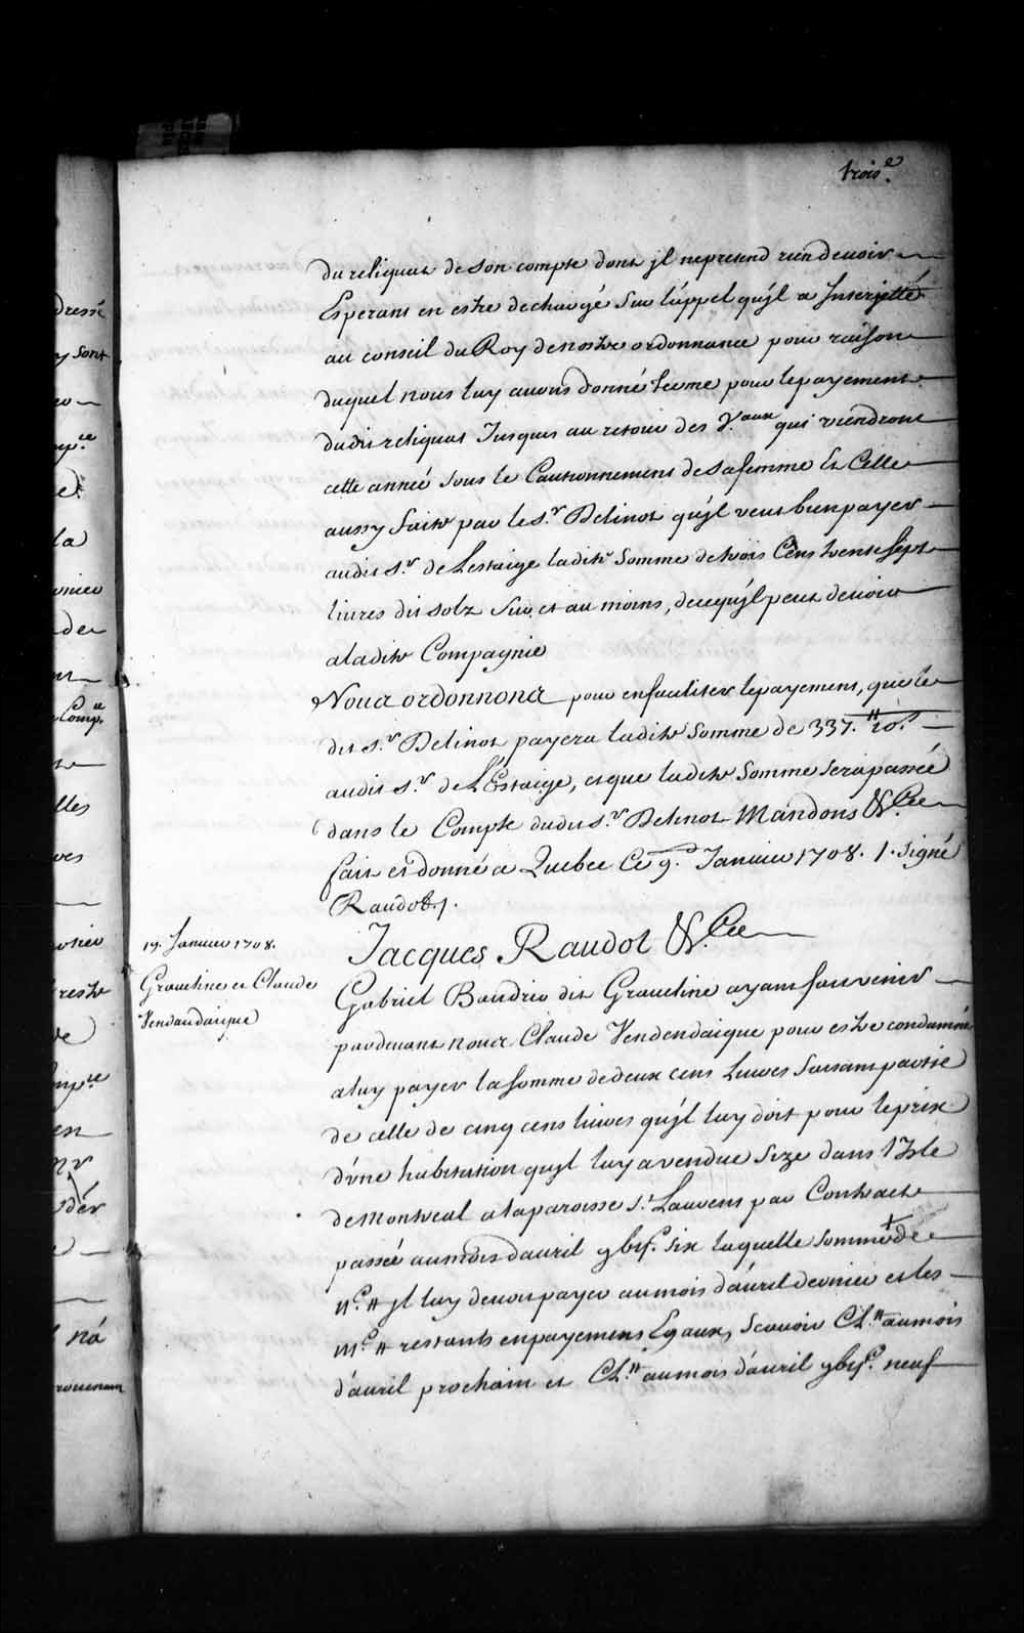 trois.e
du reliquat de son compte dont jl nepretend rien devoir
Esperant en estre dechargé sur l'appel qu'jl a Interjetté
au conseil du Roy denostre ordonnance pour raison
duquel nous luy avons donné terme pour lepayement
dudit reliquat Jusques au retour des V.aux qui viendront
cette année sous le Cautionnement desafemme Et Celle
aussy faite par le S.r Delinot qu'jl veut bienpayer
audit S.r de Lestaige ladite somme detrois Cens trente sept
livres dix solz sur et au moins, decequ'jl peut devoir
aladite Compagnie
Nous ordonnons pour enfaciliter lepayement, quele
dit S.r Delinot payera ladite somme de 337.tt 10.s
audit S.r de L'Estaige, etque ladite somme serapassée
dans le Compte dudit S.r Delinot Mandons &.Ce
fait et donné a Quebec Ce 9.e Janvier 1708. /. signé
Raudot /.
19. Janvier 1708.
Graveline et Claude
Vendandaique
Jacques Raudot &.Ce
Gabriel Baudrio dit Graveline ayant fait venir
pardevant nous Claude Vendendaique pour estre condamné
aluy payer lasomme dedeux cens Livres faisant partie
de celle de cinq cens livres qu'jl luy doit pour leprix
d'une habitation qu'jl luy a vendue size dans l'Isle
deMontreal alaparoisse S.t Laurens par Contract
passée aumois d'avril gbis.c six laquelle sommé de
ii.c tt jl luy devoit payer aumois d'avril dernier et les
iii.c tt restants enpayemens Egaux, scavoir CL.tt aumois
d'avril prochain et CL.tt aumois d'avril gbis.c neuf
dressé
y sont
la
de
Comp.e
lles
en